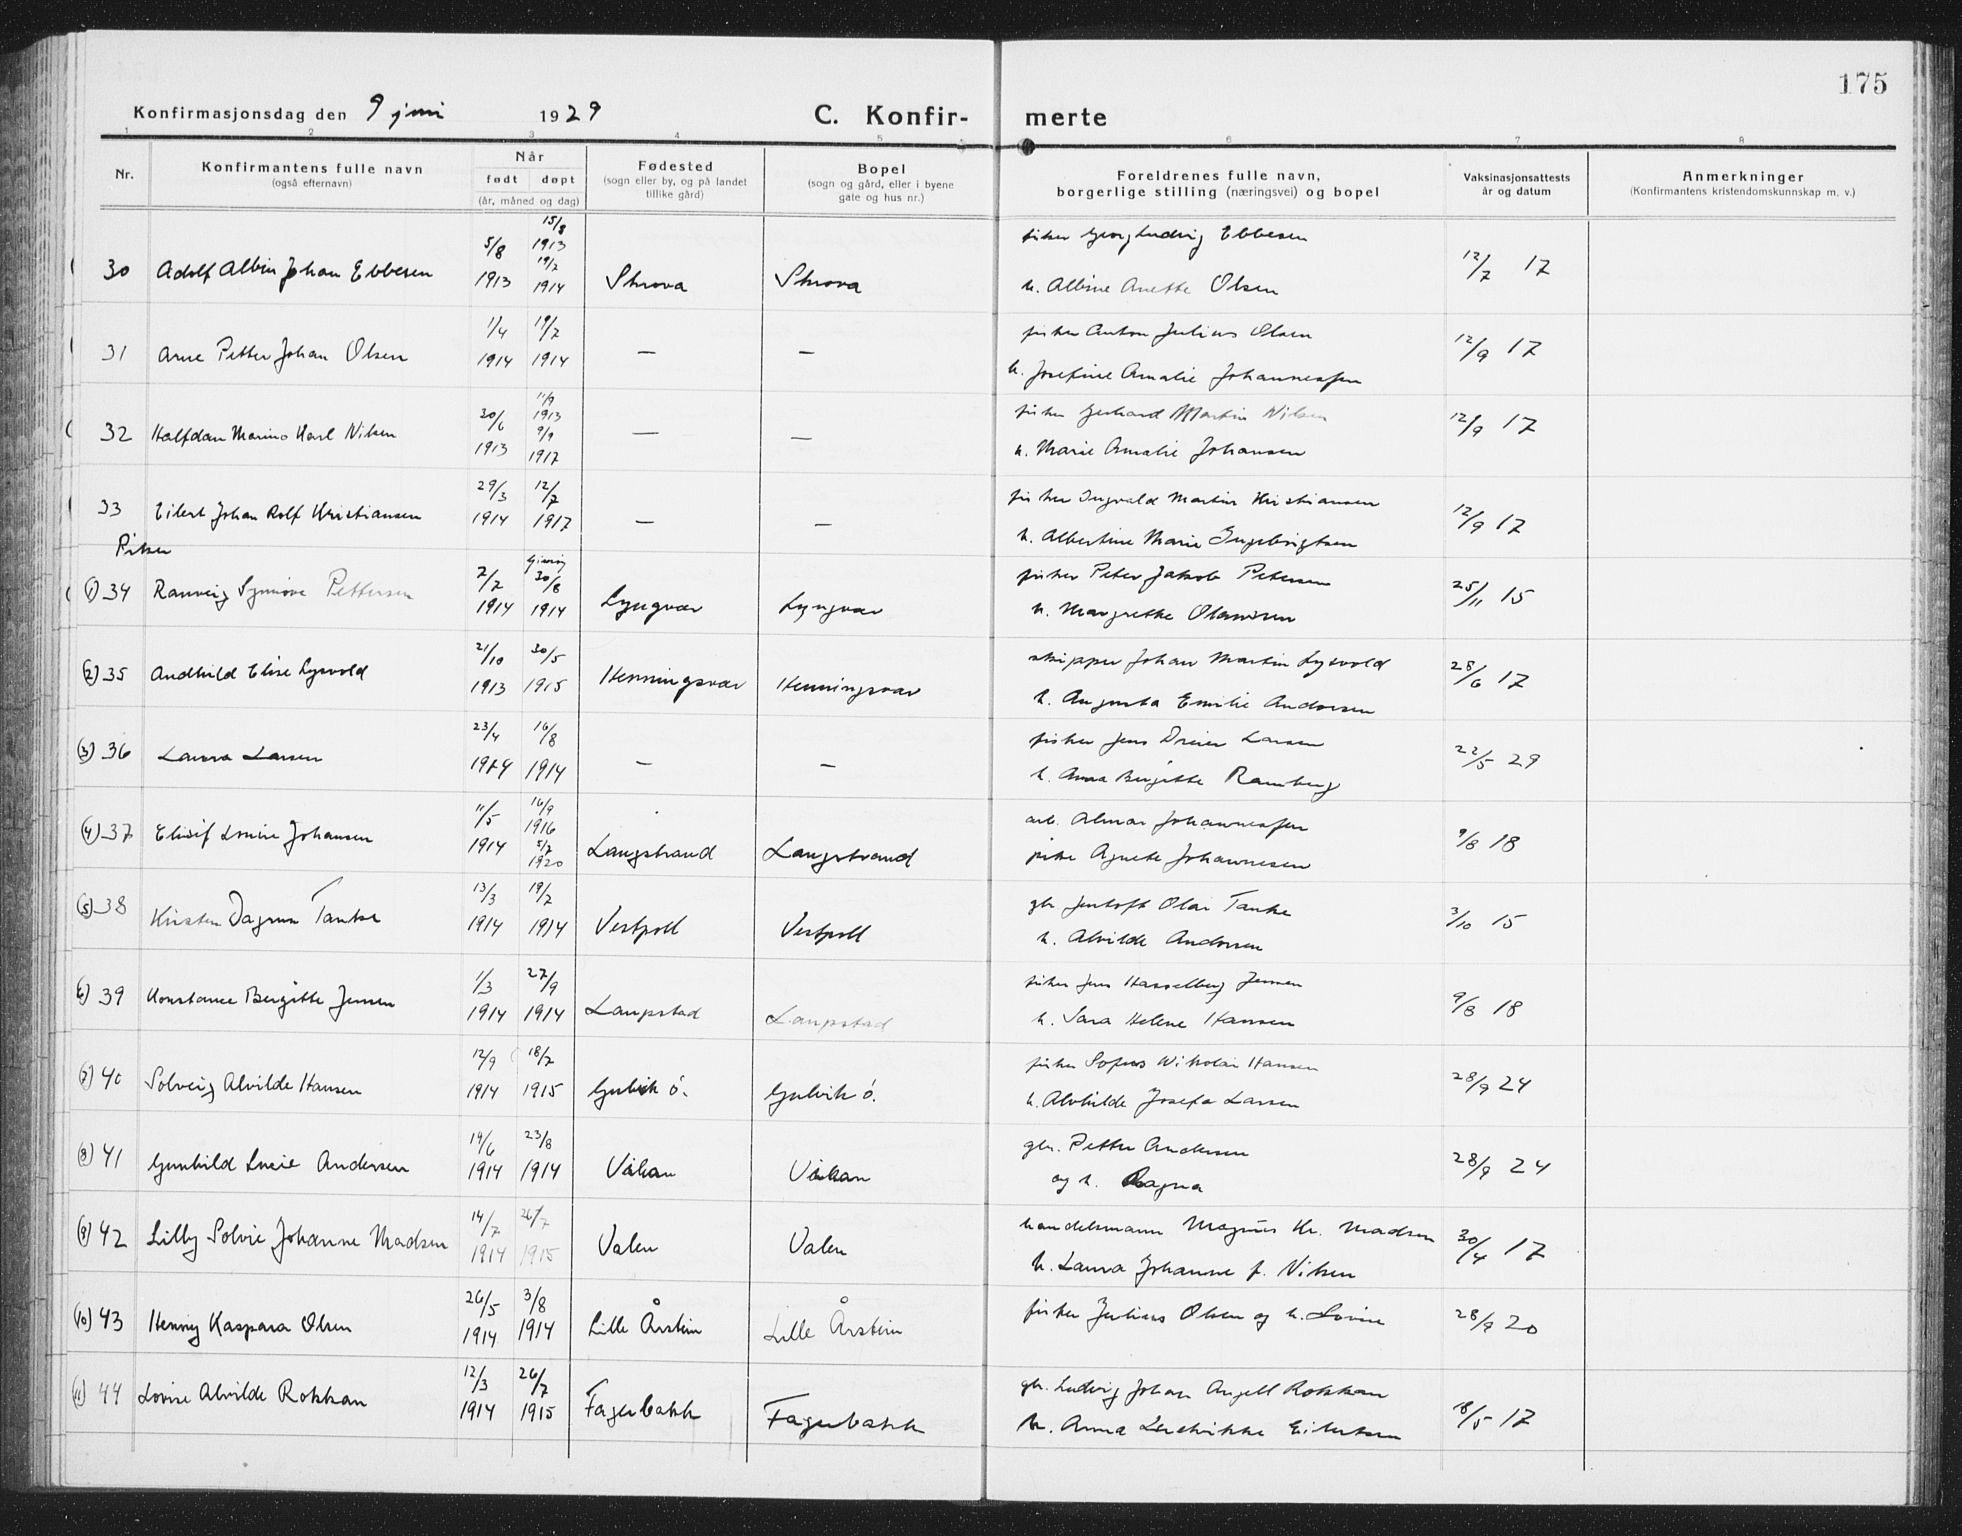 175
Konfirmasjonsdag den 9 juni 1929 C. Konfir- merte
1 2 3 4 5 6 7 8
Nr. Konfirmantens fulle navn (også efternavn) Når født døpt (år, måned og dag) Fødested (sogn eller by, og på landet tillike gård) Bopel (sogn og gård, eller i byene gate og hus nr.) Foreldrenes fulle navn, borgerlige stilling (næringsvei) og bopel Vaksinasjonsattests år og datum Anmerkninger (Konfirmantens kristendomskunnskap m. v.)
30 Adolf Albin Johan Ebbesen 5/8 1913 15/8 1913 19/7 1914 Skrova Skrova fisker Georg Ludvig Ebbesen
h. Albine Anette Olsen 12/7 17
31 Arne Petter Johan Olsen 1/4 1914 19/7 1914 — — fisker Anton Julius Olsen
h. Josefine Amalie Johannessen 12/9 17
32 Halfdan Marino Karl Nilsen 30/6 1913 11/9 1913 9/9 1917 — — fisker Gerhard Martin Nilsen
h. Marie Amalie Johansen 12/9 17
33 Eilert Johan Rolf Kristiansen 29/3 1914 12/7 1917 — — fisker Ingvald Martin Kristiansen
h. Albertine Marie Ingebrigtsen 12/9 17
Piker
1) 34 Ranveig Synnøve Pettersen 2/7 1914 Gimsøy 30/8 1914 Lyngvær Lyngvær fisker Peter Jakob Petersen
h. Margrethe 25/11 15
2) 35 Andhild Elise Lysvold 21/10 1913 30/5 1915 Henningsvær Henningsvær skipper Johan Martin Lysvold
h. Augusta Emilie Andorsen 28/6 17
3) 36 Laura Larsen 23/4 1914 16/8 1914 — — fisker Jens Dreier Larsen
h. Anna Bergitte Ramberg 22/5 29
4) 37 Elisif Lovise Johansen 11/5 1914 16/9 1916 5/7 1920 Langstrand Langstrand arb. Almar Johannessen
pike Agnete Johannesen 9/8 18
5) 38 Kirsten Dagrun Tanke 13/3 1914 19/7 1914 Vestpoll Vestpoll gbr. Jentoft Olai Tanke
h. Alvilde Andorsen 3/10 15
6) 39 Konstance Bergitte Jensen 1/3 1914 27/9 1914 Laupstad Laupstad fisker Jens Hasselberg Jensen
h. Sara Helene Hansen 9/8 18
7) 40 Solveig Alvilde Hansen 12/9 1914 18/7 1915 Gulvik ø. Gulvik ø. fisker Sofus Nikolai Hansen
h. Alvhilde Josefa Larsen 28/9 24
8) 41 Gunhild Lucie Andersen 19/6 1914 23/8 1914 Våkan Våkan gbr. Petter Andersen
og h. Ragna 28/9 24
9) 42 Lilly Solvie Johanne Madsen 14/7 1914 26/7 1915 Valen Valen handelsmann Magnus Kr. Madsen
h. Laura Johanne f. Nilsen 30/4 17
10) 43 Henny Kaspara Olsen 26/5 1914 3/8 1914 Lille Årstein Lille Årstein fisker Julius Olsen og h. Lovise 28/9 20
11) 44 Lovise Alvilde Rokkan 12/3 1914 26/7 1915 Fagerbakk Fagerbakk gbr. Ludvig Johan Angell Rokkan
h. Anna Ludvikke Eilertsen 18/5 17